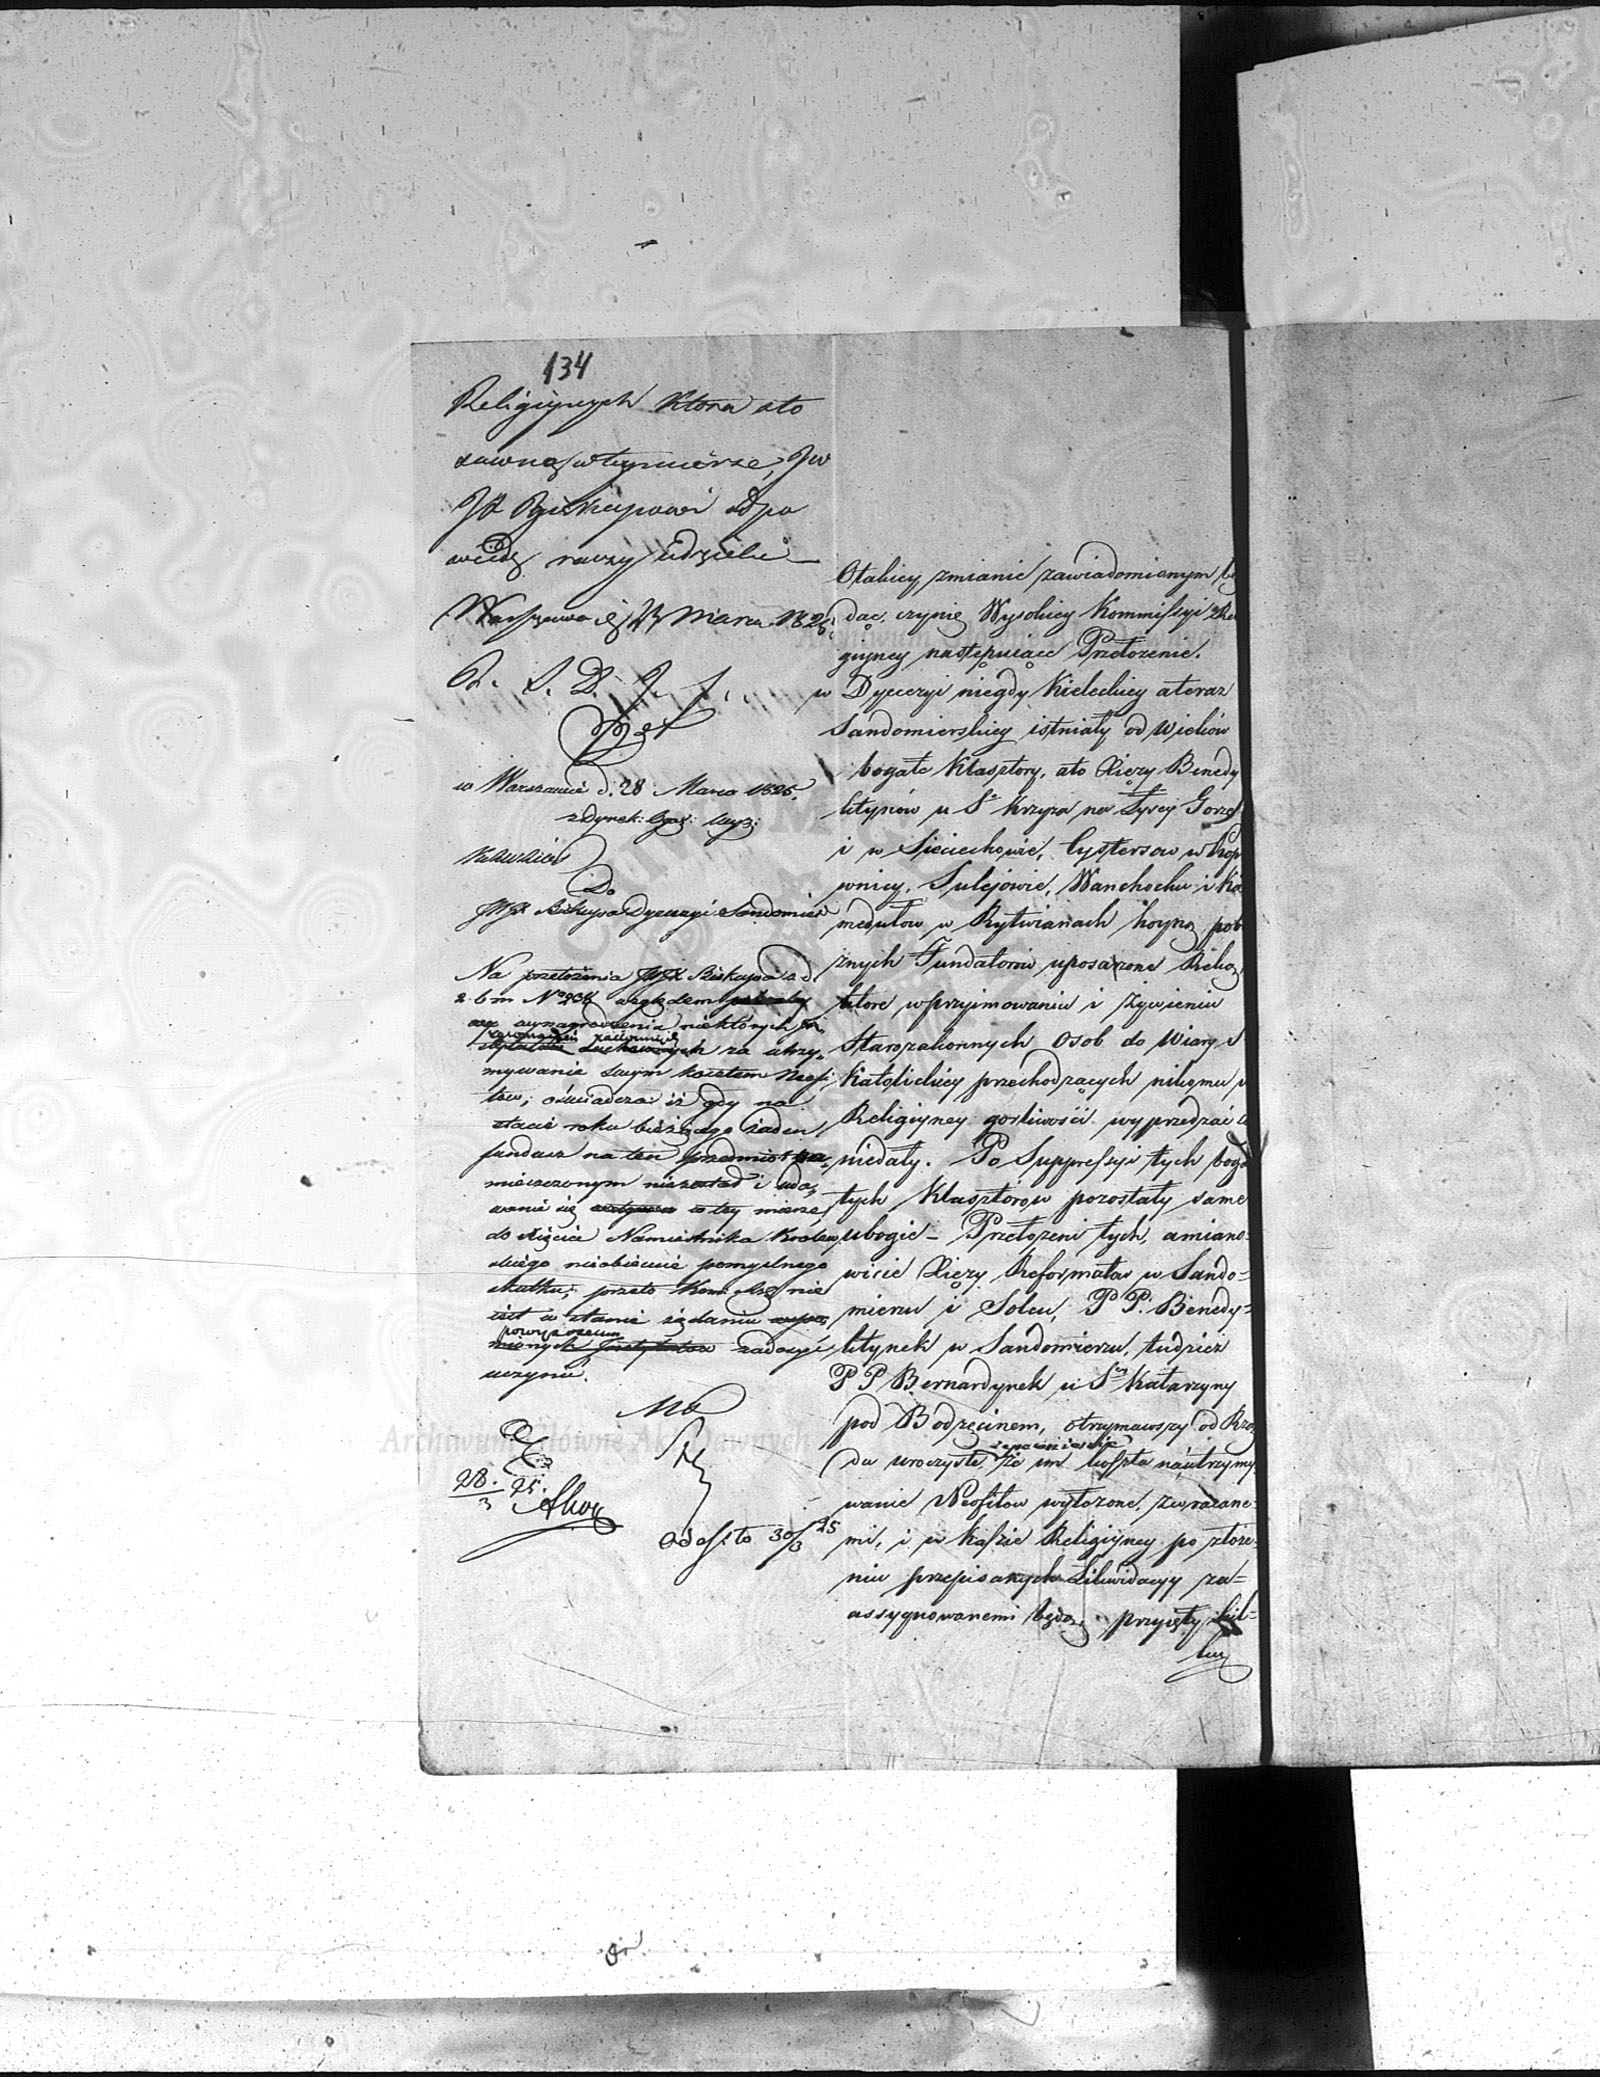 134
Religiynych która sto
sowną w tey mierze, JW
JX Biskupowi odpo
wiedź raczy udzielić
Warszawa d. Marca 1825
w Warszawie d. 28 Marca 1825.
Do
JWJX Biskupa Dyecezyi Sandomier
Na przełożenie JWJX Biskupa z d
2 b m No 234 względem
wynagrodzenia niektórych
za utrzy
mywanie swym kosztem Neofi
tów, oświadcza iż gdy na
etacie roku bieżącego żaden
fundusz na ten przedmiot za
mieszczonym nie został i uda
wanie się w tey mierze
do Xięcia Namiestnika Królew
skiego nieobiecuie pomyślnego
skutku, przeto Kom: Rzą nie
iest w stanie żądaniu
powyższemu
zadosyć
uczynić.
28/3 25.
Odesłto 30/3 25
Otakiey zmianie zawiadomionym bę
dąc, czynię Wysokiey Kommissyi Reli
giyney następuiące Przełożenie.
w Dyecezyi niegdy Kieleckiey a teraz
Sandomierskiey istniały od wieków
bogate Klasztory, ato Xięży Benedy
ktynów u Sº Krzyża na Łysey Gorze
i w Sieciechowie, Cystersow w Kopr
wnicy, Sulejowie, Wanchocku i Ka
medułow w Rytwianach hoyną pobo
żnych Fundatorów uposażone Ręką,
które w przyimowaniu i żywieniu
Starozakonnych Osob do Wiary S
Katolickiey przechodzących nikomu w
Religiyney gorliwości wyprzedzać się
niedały. Po Suppressyi tych boga
tych Klasztorow pozostały same
ubogie – Przełożeni tych, amiano=
wicie Xięży Reformatow w Sando=
mierzu i Solcu, P P. Benedy=
ktynek w Sandomierzu, tudzież
P P Bernardynek u Sey Katarzyny
pod Bodzęcinem, otrzymawszy od Rzą
du uroczyste zapewnienie że im koszta na utrzymy
wanie Neofitow wyłożone, zwracane=
mi, i w Kassie Religiyney po złoże=
niu przepisanych Likwidacyy za=
assygnowanemi będą, przyięły kil=
ku
Archiwum Główne Akt Dawnych